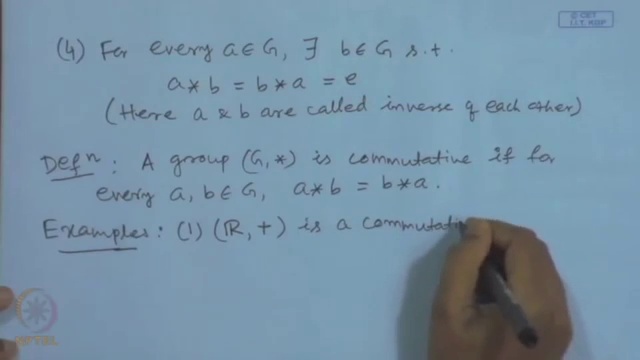 © CET
I.I.T. KGP
(4) For every a∈G, ∃ b∈G s.t.
a*b = b*a = e
(Here a & b are called inverse of each other)
Defⁿ: A group (G,*) is commutative if for
every a, b∈G, a*b = b*a.
Examples: (1) (ℝ,+) is a commutati
NPTEL